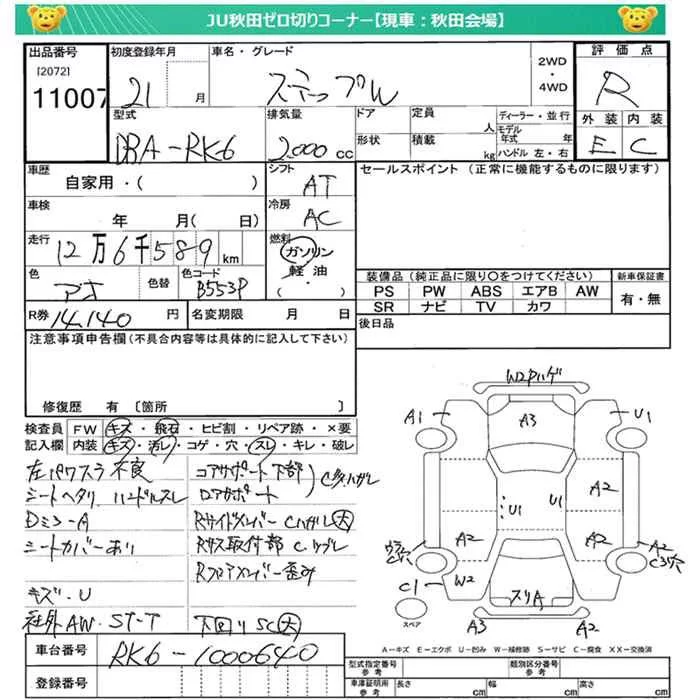 JU秋田ゼロ切りコーナー【現車：秋田会場】
出品番号
[2072]
11007
初度登録年月
21 月
車名・グレード
ステップW
2WD
・
4WD
評価点
R
外装 内装
E C
型式
DBA-RK6
排気量
2,000 cc
ドア
形状
定員
人
積載
kg
ディーラー・並行
モデル年式 年
ハンドル 左・右
車歴
自家用・( )
シフト
AT
セールスポイント (正常に機能するものに限ります)
車検
年 月( 日)
冷房
AC
走行
12万6千589km
燃料
ガソリン
・
軽油
( )
色
アオ
色替
色コード
B553P
装備品 (純正品に限り○をつけてください)
PS PW ABS エアB AW
SR ナビ TV カワ
新車保証書
有・無
R券 14,140 円
名変期限 月 日
後日品
注意事項申告欄(不具合内容等は具体的に記入して下さい)
修復歴 有 〔箇所
検査員記入欄
FW キズ・飛石・ヒビ割・リペア跡・×要
内装 キズ・汚レ・コゲ・穴・スレ・キレ・破レ
左パワスラ不良
シートヘタリ ハンドルスレ
Dミラ-A
シートカバーあり
キズ・U
社外AW. ST-T
コアサポート下部
ロアサポート
Rサイドメンバー Cハガレ(大)
Rサス取付部 C.
Rフロアメンバー歪み
下回り SC(大)
W2Pハゲ
A1
A3
U1
A2
U1
U1
A2
A2
A2
C3穴
C1
W2
スリA
A3
A2
スペア
A-キズ E-エクボ U-凹み W-補修跡 S-サビ C-腐食 XX-交換済
車台番号
RK6-1000640
登録番号
型式指定番号
参考
類別区分番号
参考
車庫証明用
参考
長さ cm
幅 cm
高さ cm